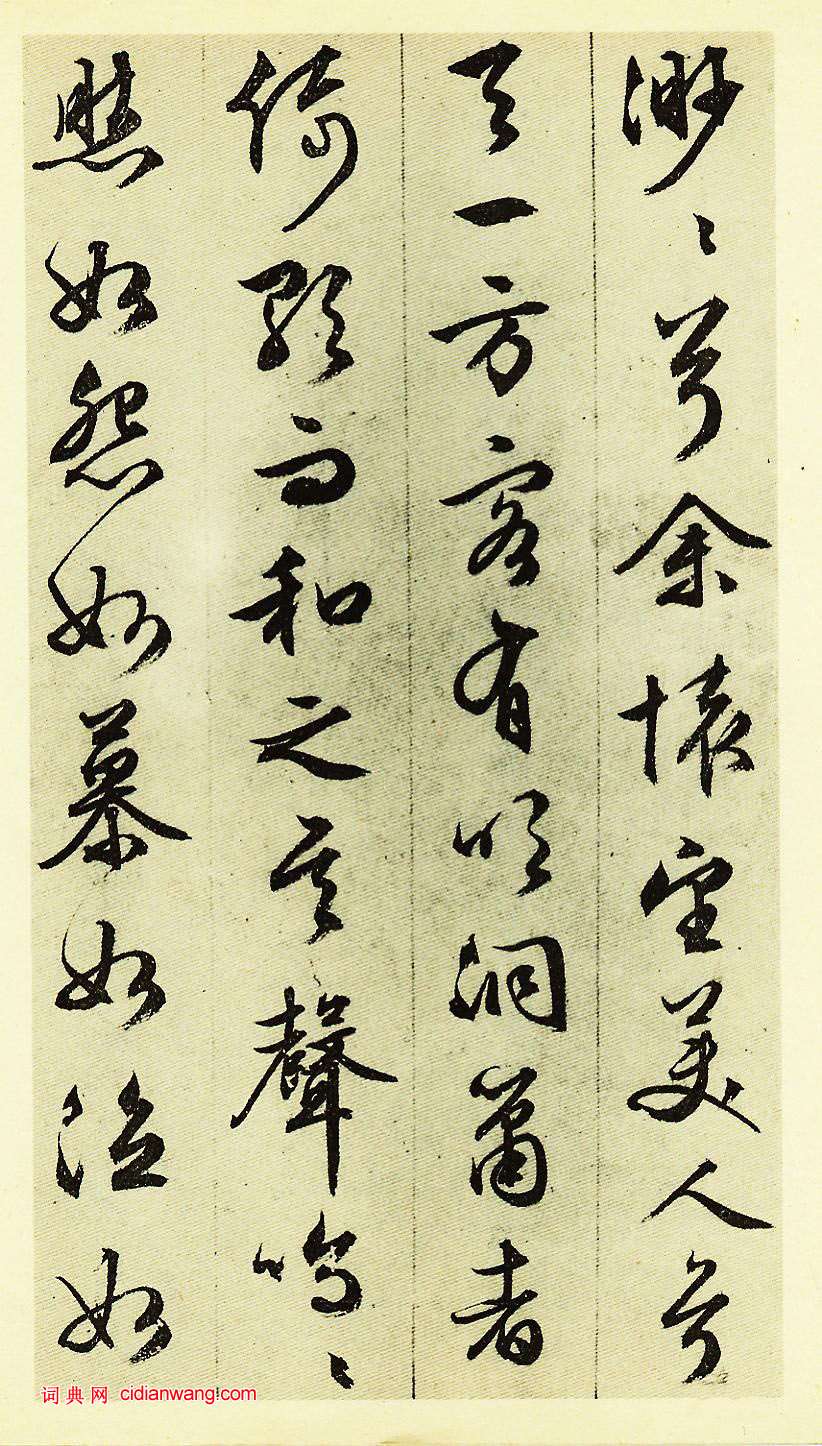 渺〻兮余懷望美人兮
天一方客有吹洞簫者
倚歌而和之其聲嗚〻
然如怨如慕如泣如
词典网 cidianwang.com